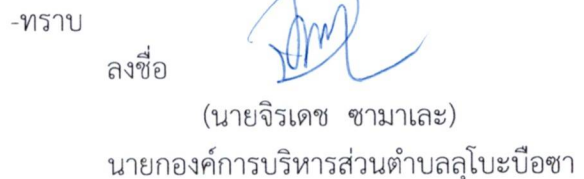 -ทราบ
ลงชื่อ
(นายจิรเดช ซามาเละ)
นายกองค์การบริหารส่วนตำบลลุโบะบือซา